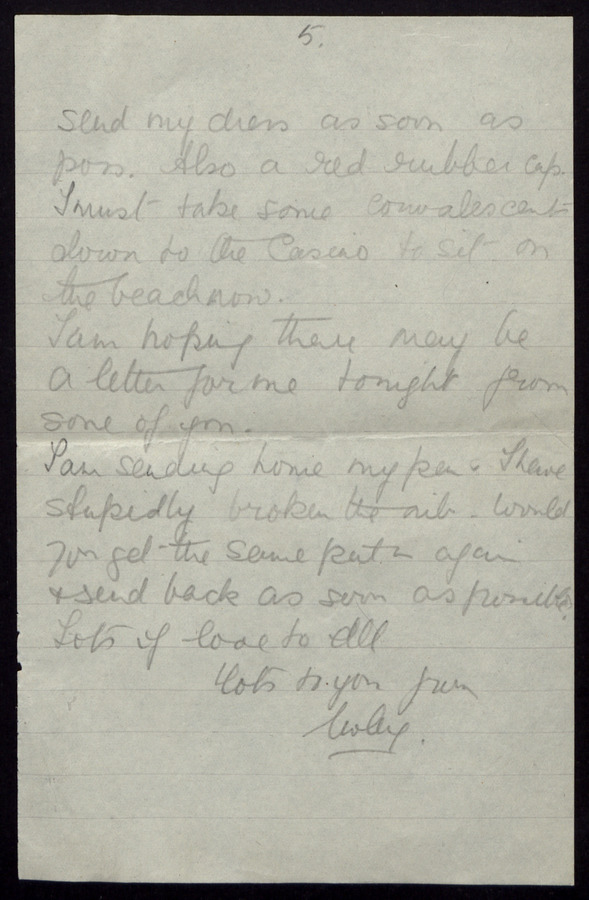 5.
send my dress as soon as
poss. Also a red rubber cap.
I must take some convalescents
down to the Casino to sit on
the beach now.
I am hoping there may be
a letter for me tonight from
some of you.
I am sending home my pen & I have
stupidly broken the nib. Would
you get the same put in again
& send back as soon as possible.
Lots of love to all
& lots to you from